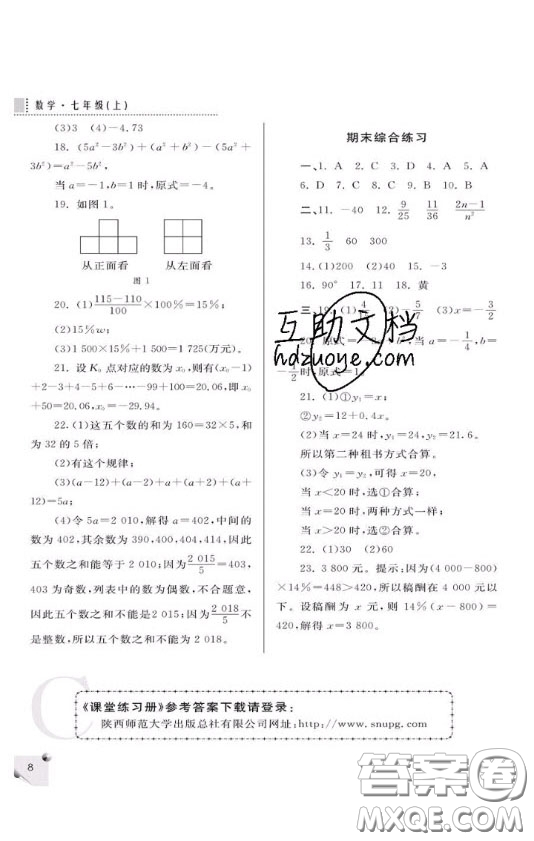 数学·七年级(上)
(3)3 (4)-4.73
18. (5a²-3b²)+(a²+b²)-(5a²+
3b²)=a²-5b²,
当 a=-1,b=1 时,原式=-4。
19. 如图 1。
从正面看 从左面看
图 1
20. (1)(115-110)/100×100%=15%;
(2)15%w;
(3)1 500×15%+1 500=1 725(万元)。
21. 设 K₀ 点对应的数为 x₀,则有(x₀-1)
+2-3+4-5+6-…-99+100=20.06,即 x₀
+50=20.06,x₀=-29.94。
22. (1)这五个数的和为 160=32×5,和
为 32 的 5 倍;
(2)有这个规律;
(3)(a-12)+(a-2)+a+(a+2)+(a+
12)=5a;
(4)令 5a=2 010,解得 a=402,中间的
数为 402,其余数为 390,400,404,414,因此
五个数之和能等于 2 010;因为2 015/5=403,
403 为奇数,列表中的数为偶数,不合题意,
因此五个数之和不能为 2 015;因为2 018/5
不是整数,所以五个数之和不能为 2 018。
期末综合练习
一、1. A 2. C 3. D 4. A 5. A
6. D 7. C 8. C 9. B 10. B
二、11. -40 12. 9/25 11/36 (2n-1)/n²
13. 1/3 60 300
14. (1)200 (2)40 15. -3
16. 90° 17. 11 18. 黄
三、19. (1) (2)-5/7 (3)x=-3/2
20. 原式= 当 a=-1/4,b=
-1/2时,原式=1
21. (1)①y₁=x;
②y₂=12+0.4x。
(2)当 x=24 时,y₁=24,y₂=21.6。
所以第二种租书方式合算。
(3)令 y₁=y₂,可得 x=20。
当 x<20 时,选①合算;
当 x=20 时,两种方式一样;
当 x>20 时,选②合算。
22. (1)30 (2)60
23. 3 800 元。提示:因为(4 000-800)
×14%=448>420,所以稿酬在 4 000 元以
下。设稿酬为 x 元,则 14%(x-800)=
420,解得 x=3 800。
互助文档
hdzuoye.com
《课堂练习册》参考答案下载请登录:
陕西师范大学出版总社有限公司网址:http://www.snupg.com
8
答案卷
MXQE.COM